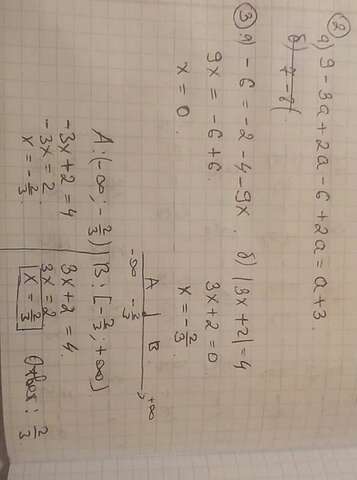 ②
а) 9 - 3a + 2a - 6 + 2a = a + 3.
③ а) - 6 = - 2 - 4 - 9x.
9x = - 6 + 6.
x = 0.
б) |3x + 2| = 4
3x + 2 = 0.
x = - 2/3.
A B
-∞ - 2/3 +∞
A: (-∞; - 2/3)
-3x + 2 = 4
-3x = 2.
x = - 2/3.
B: [- 2/3; +∞)
3x + 2 = 4.
3x = 2
x = 2/3
Ответ: 2/3